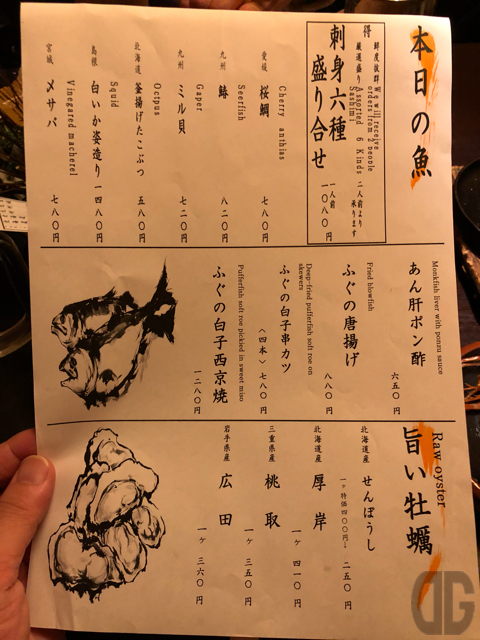 本日の魚
得 鮮度抜群
厳選盛り
We will receive
orders from 2 people
Assorted 6 Kinds
Sashimi
刺身六種
盛り合せ
二人前より
承ります
一人前
一〇八〇円
愛媛 桜鯛 七八〇円
Cherry anthias
九州 鰆 八二〇円
Seerfish
九州 ミル貝 七二〇円
Gaper
北海道 釜揚げたこぶつ 五八〇円
Octpus
島根 白いか姿造り 一四八〇円
Squid
宮城 〆サバ 七八〇円
Vinegared macherel
Monkfish liver with ponzu sauce
あん肝ポン酢 六五〇円
Fried blowfish
ふぐの唐揚げ 八八〇円
Deep-fried pufferfish soft roe on
skewers
ふぐの白子串カツ 〈四本〉七八〇円
Pufferfish soft roe pickled in sweet miso
ふぐの白子西京焼 一二八〇円
Raw oyster
旨い牡蠣
北海道産 せんぽうし
一ヶ特価四〇〇円→ 二五〇円
北海道産 厚岸 一ヶ 四一〇円
三重県産 桃取 一ヶ 三五〇円
岩手県産 広田 一ヶ 三六〇円
DG